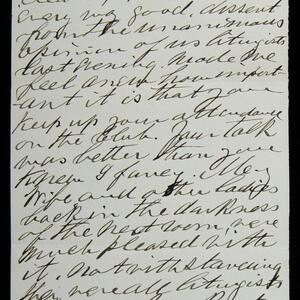 every way good. dissent
from the unanimous
opinion of us
last evening. Made me
feel anew how import
ant it is that you
keep up your attendance
on the Club. Your talk
was better than you
knew I fancy. My
wife and other ladies
back in the darkness
of the next room, were
much pleased with
it, notwithstanding
they were all